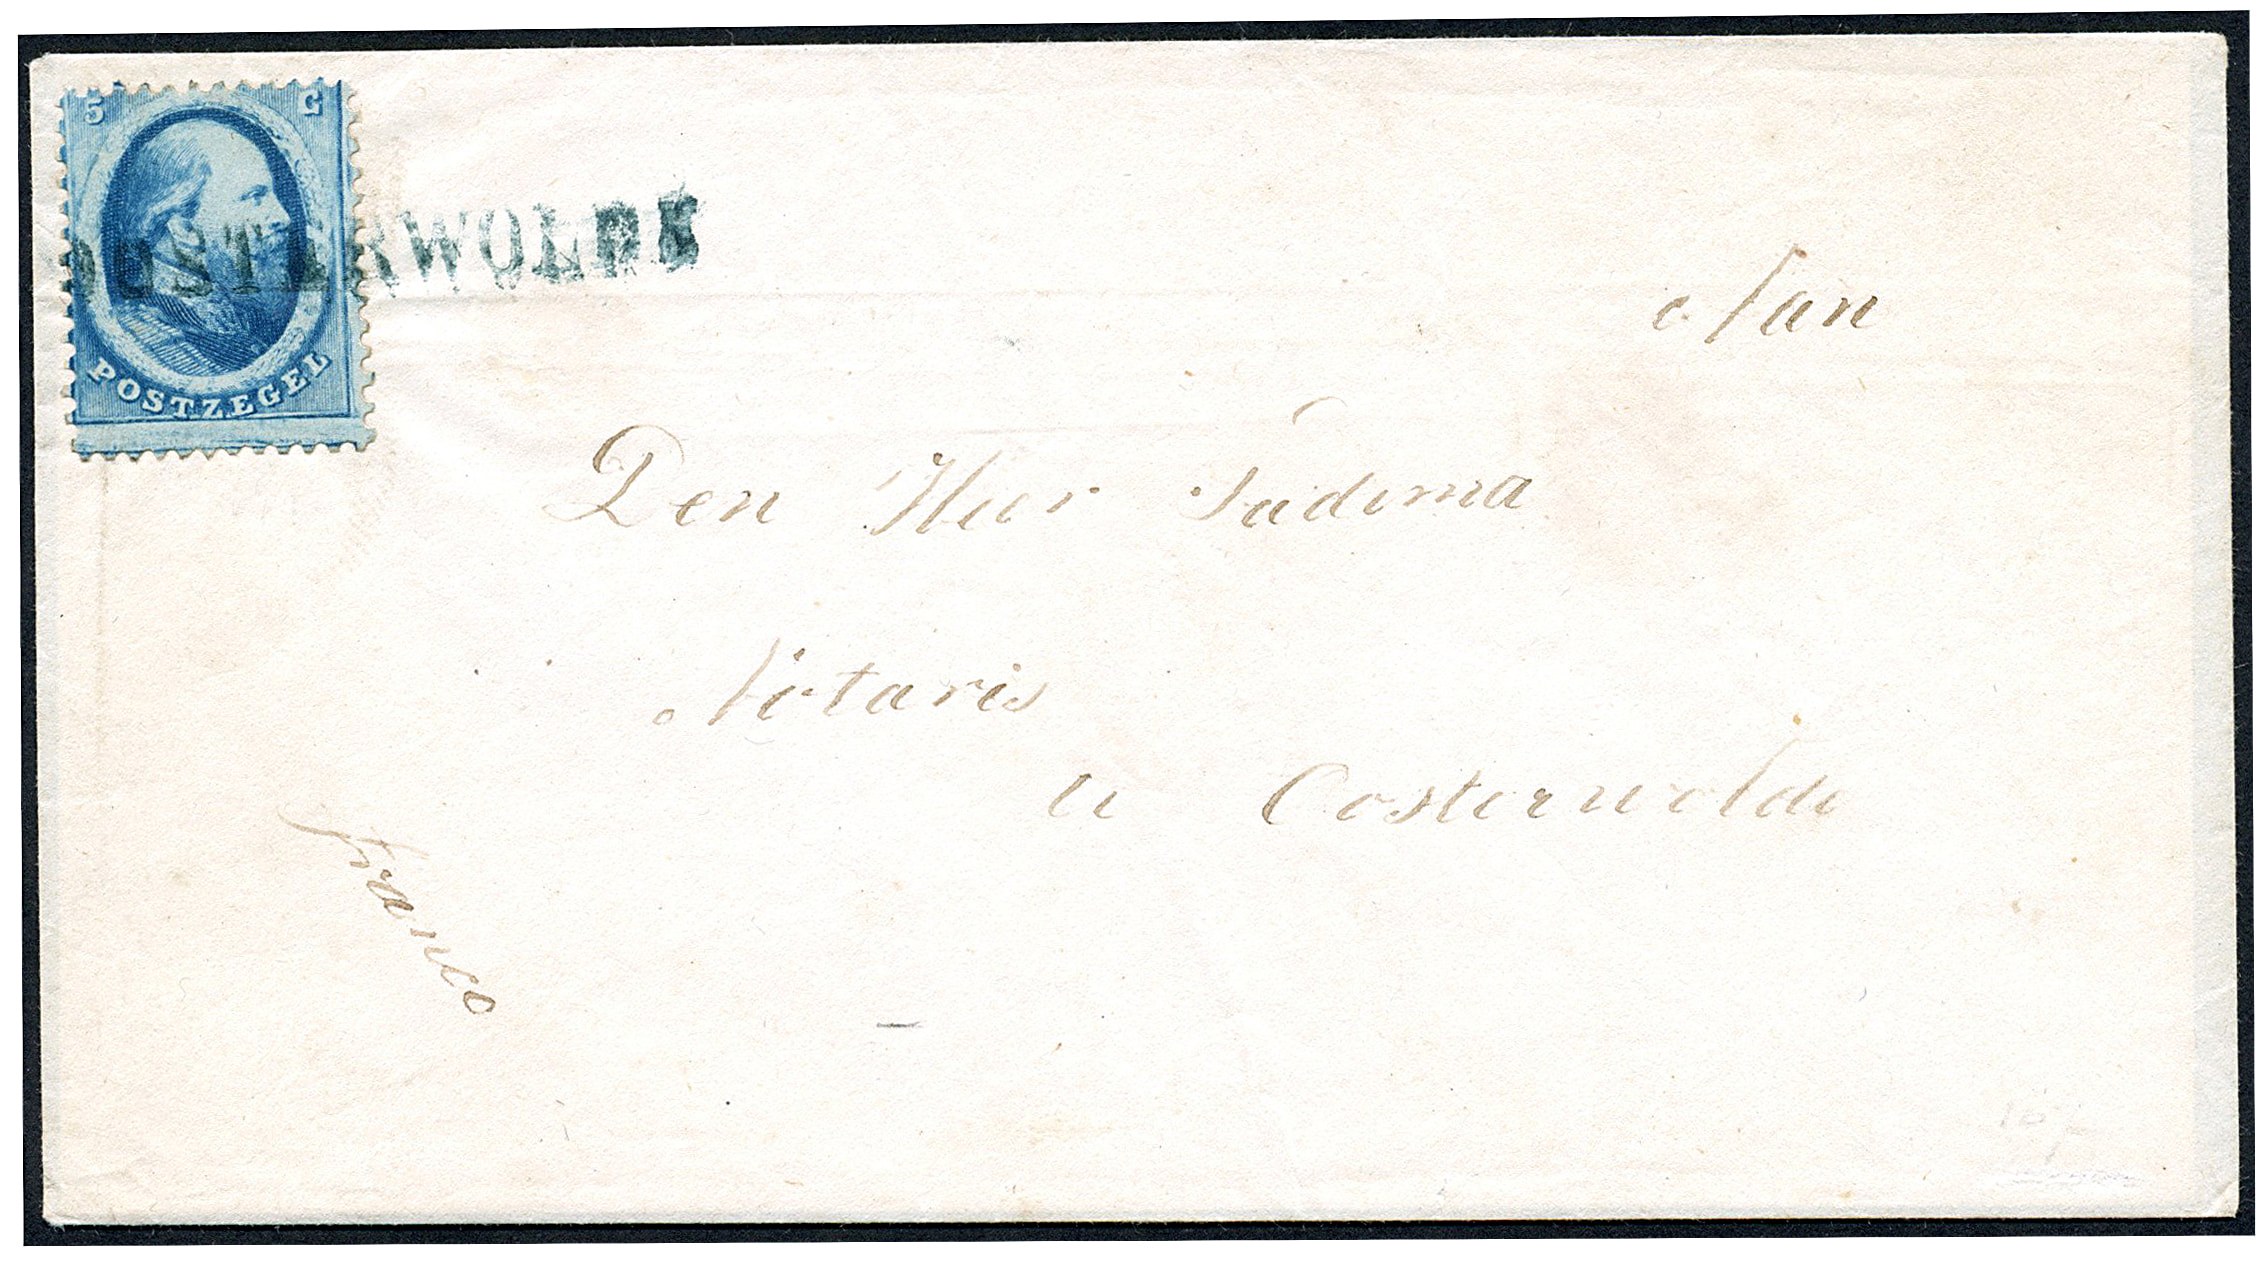 5 C
POSTZEGEL
OOSTERWOLDE
Aan
Den Heer Sadema
Notaris
te Oosterwolde
franco